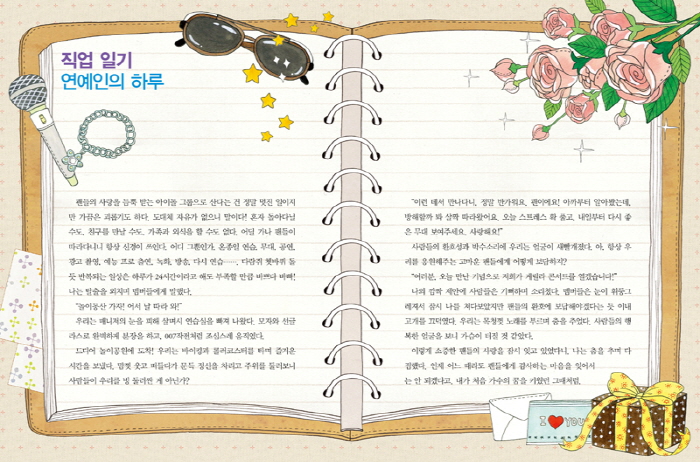 직업 일기
연예인의 하루
팬들의 사랑을 듬뿍 받는 아이돌 그룹으로 산다는 건 정말 멋진 일이지
만 가끔은 괴롭기도 하다. 도대체 자유가 없으니 말이다! 혼자 돌아다닐
수도, 친구를 만날 수도, 가족과 외식을 할 수도 없다. 어딜 가나 팬들이
따라다니니 항상 신경이 쓰인다. 어디 그뿐인가. 온종일 연습, 무대, 공연,
광고 촬영, 예능 프로 출연, 녹화, 방송, 다시 연습……. 다람쥐 쳇바퀴 돌
듯 반복되는 일상은 하루가 24시간이라고 해도 부족할 만큼 바쁘다 바빠!
나는 일탈을 외치며 멤버들에게 말했다.
"놀이동산 가자! 어서 날 따라 와!"
우리는 매니저의 눈을 피해 살며시 연습실을 빠져 나왔다. 모자와 선글
라스로 완벽하게 분장을 하고, 007작전처럼 조심스레 움직였다.
드디어 놀이공원에 도착! 우리는 바이킹과 롤러코스터를 타며 즐거운
시간을 보냈다. 맘껏 웃고 떠들다가 문득 정신을 차리고 주위를 둘러보니
사람들이 우리를 빙 둘러싼 게 아닌가?
"이런 데서 만나다니, 정말 반가워요. 팬이에요! 아까부터 알아봤는데,
방해할까 봐 살짝 따라왔어요. 오늘 스트레스 확 풀고, 내일부터 다시 좋
은 무대 보여주세요. 사랑해요!"
사람들의 환호성과 박수소리에 우리는 얼굴이 새빨개졌다. 아, 항상 우
리를 응원해주는 고마운 팬들에게 어떻게 보답하지?
"여러분, 오늘 만난 기념으로 저희가 게릴라 콘서트를 열겠습니다!"
나의 깜짝 제안에 사람들은 기뻐하며 소리쳤다. 멤버들은 눈이 휘둥그
레져서 잠시 나를 쳐다보았지만 팬들의 환호에 보답해야겠다는 듯 이내
고개를 끄덕였다. 우리는 목청껏 노래를 부르며 춤을 추었다. 사람들의 행
복한 얼굴을 보니 가슴이 터질 것 같았다.
이렇게 소중한 팬들의 사랑을 잠시 잊고 있었다니. 나는 춤을 추며 다
짐했다. 언제 어느 때라도 팬들에게 감사하는 마음을 잊어서
는 안 되겠다고. 내가 처음 가수의 꿈을 키웠던 그때처럼.
I ♥ You